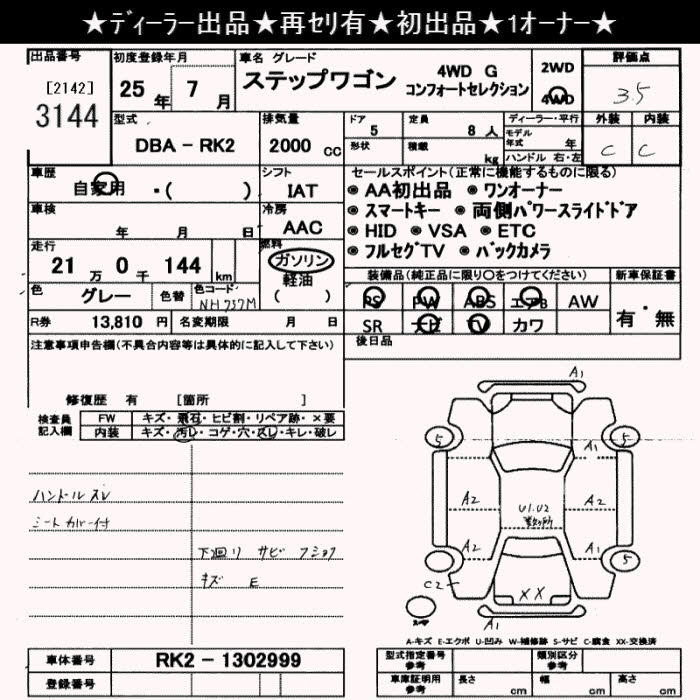 ★ﾃﾞｨｰﾗｰ出品★再ｾﾘ有★初出品★1ｵｰﾅｰ★
出品番号 初度登録年月 車名 グレード 評価点
[2142]
3144
25年 7月
ステップワゴン
4WD G
コンフォートセレクション
2WD
4WD
3.5
型式 排気量 ドア 定員 ディーラー・平行 外装 内装
DBA - RK2
2000 cc
5
8 人
モデル
年式 年
形状 積載 kg
ハンドル 右・左
C C
車歴 シフト セールスポイント(正常に機能するものに限る)
自家用 ・( )
IAT
◉ AA初出品 ◉ ワンオーナー
車検 冷房
◉ スマートキー ◉ 両側パワースライドドア
年 月 日
AAC
◉ HID ◉ VSA ◉ ETC
走行 燃料
◉ フルセグTV ◉ バックカメラ
21 万 0 千 144 km
ガソリン
軽油
( )
装備品(純正品に限り○をつけてください) 新車保証書
色 グレー 色替 色コード NH757M
PS PW ABS エアB AW
有・無
R券 13,810 円 名変期限 月 日
SR ナビ TV カワ
注意事項申告欄(不具合内容等は具体的に記入して下さい)
後日品
修復歴 有 [箇所 ]
検査員
記入欄
FW キズ・飛石・ヒビ割・リペア跡・×要
内装 キズ・汚レ・コゲ・穴・スレ・キレ・破レ
ハンドル スレ
シートカバー付
下廻り サビ フショク
キズ E
A1
5 5
A1
A2 U1.U2 A2
数ヶ所
A2 A1
5
C2
XX
A1
スペア
A-キズ E-エクボ U-凹み W-補修跡 S-サビ C-腐食 XX-交換済
車体番号 RK2 - 1302999
登録番号
型式指定番号
参考
類別区分
参考
車庫証明用
参考
長さ cm 幅 cm 高さ cm